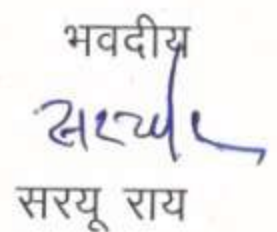 भवदीय
सरयू राय